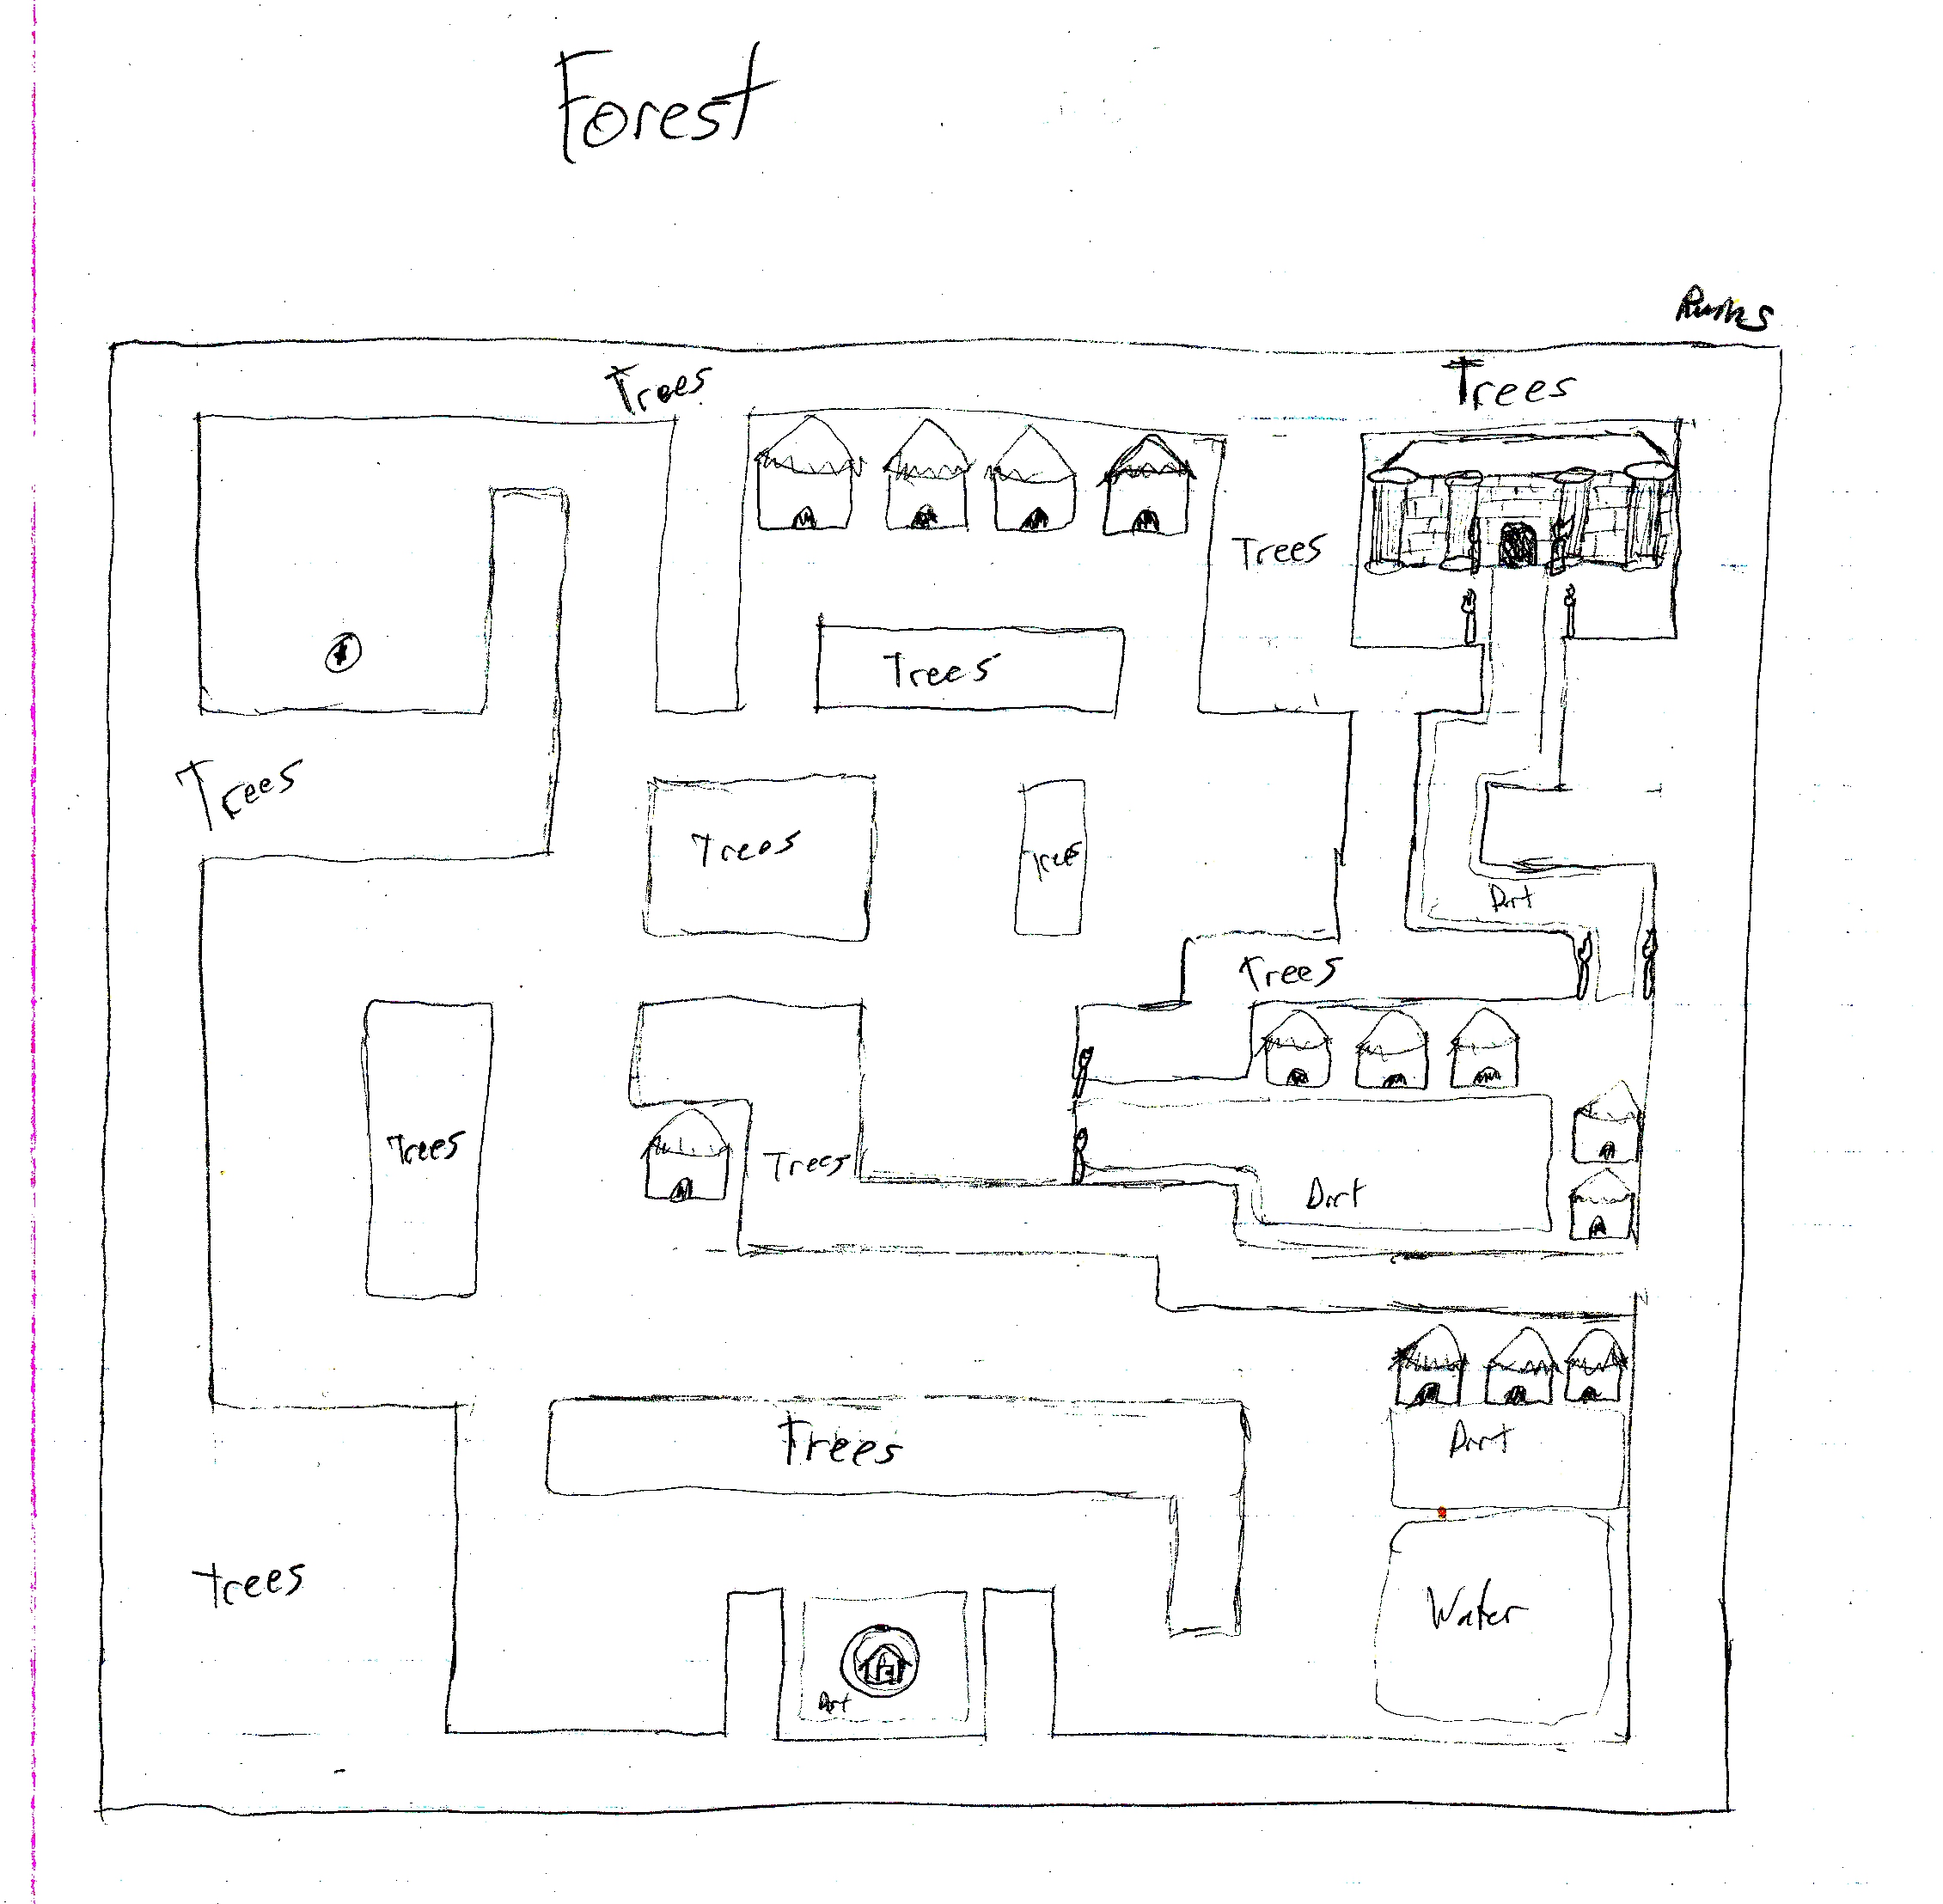 Forest
Ruins
Trees
Trees
Trees
Trees
Trees
Trees
Trees
Dirt
Trees
Trees
Trees
Dirt
Trees
Dirt
Trees
Water
Dirt